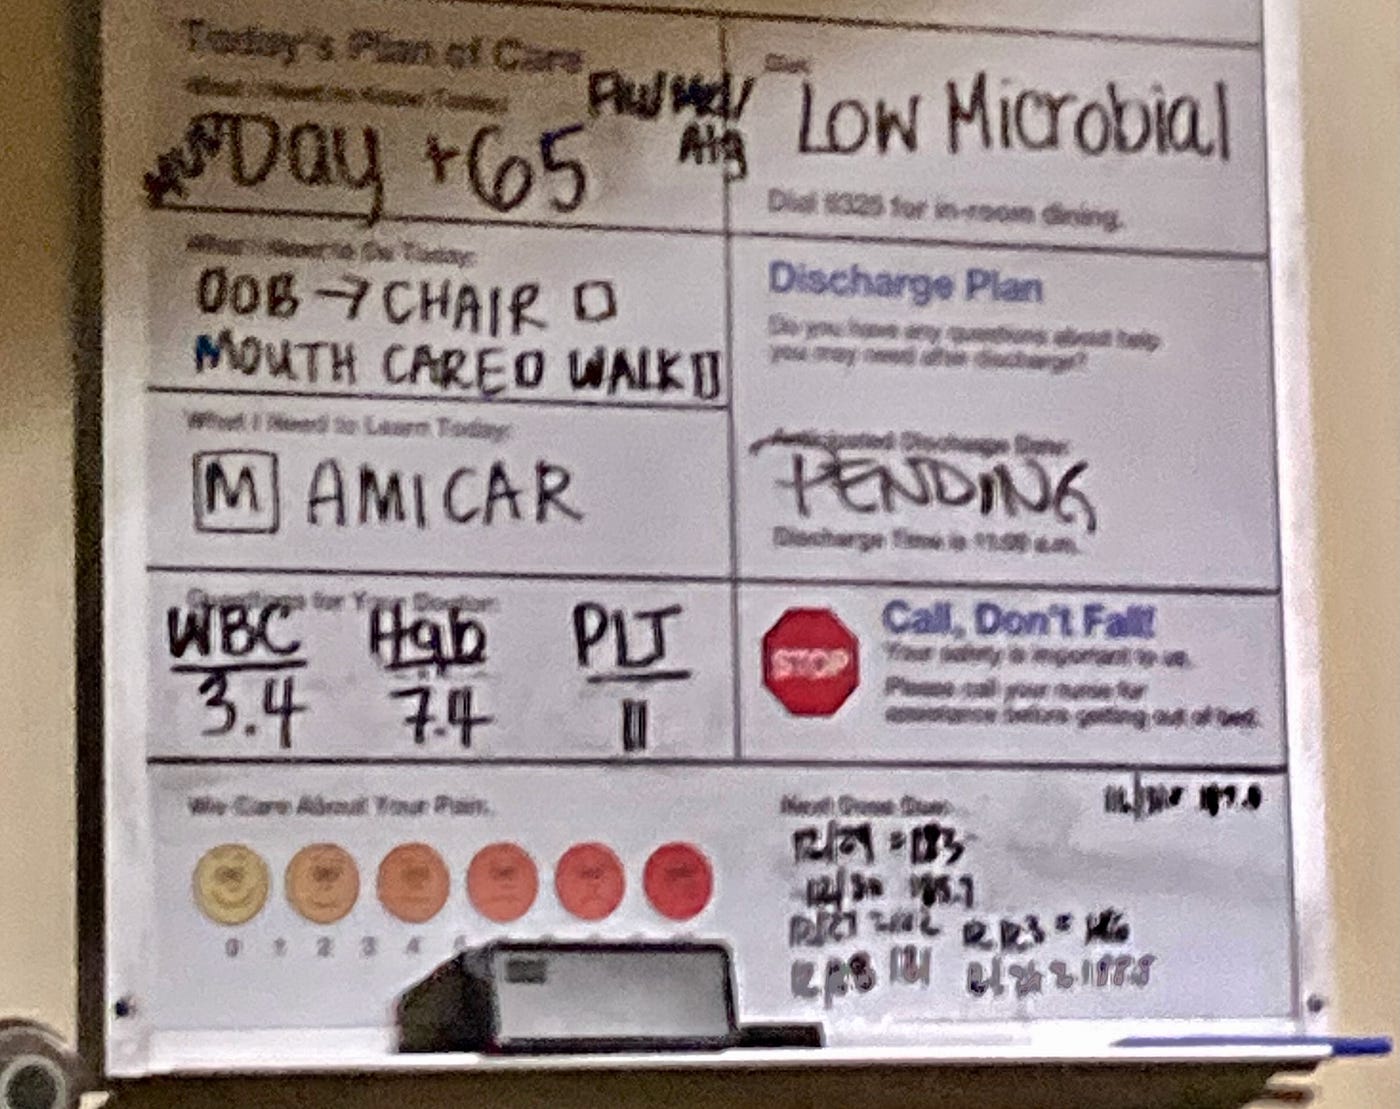 Today's Plan of Care
What I Need to Know Today:
Day +65
Flu/Mel/
Atg
Low Microbial
Dial 6325 for in-room dining.
What I Need to Do Today:
OOB → CHAIR □
MOUTH CARE □ WALK □
What I Need to Learn Today:
M AMICAR
Discharge Plan
Do you have any questions about help
you may need after discharge?
Anticipated Discharge Date:
PENDING
Discharge Time is 11:00 a.m.
Questions for Your Doctor:
WBC Hgb PLT
3.4 7.4 11
STOP
Call, Don't Fall!
Your safety is important to us.
Please call your nurse for
assistance before getting out of bed.
We Care About Your Pain.
0 1 2 3 4
Next Dose Due:
12/29 = 183
12/30 185.7